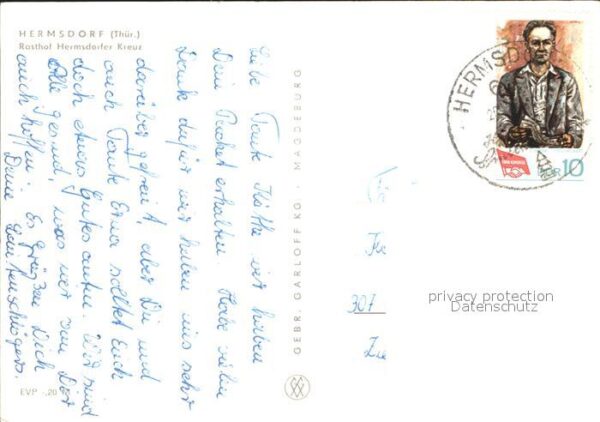 HERMSDORF (Thür.)
Rasthof Hermsdorfer Kreuz
Liebe Tante Käthe wir haben
Dein Packet erhalten. Habe vielen
Dank dafür wir haben uns sehr
darüber gefreut, aber Du und
auch Tante Erna solltet Euch
doch etwas Gutes antun. Wir sind
Alle gesund, was wir von Dir
auch hoffen. Es grüßen Dich
Deine
EVP -,20
GEBR. GARLOFF KG · MAGDEBURG
HERMSDO
DDR 10
307
privacy protection
Datenschutz